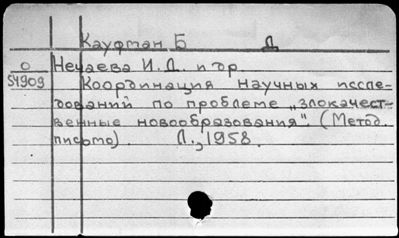 Кауфман Б Д
О Нечаева И.Д. и др.
54909 Координация научных иссле-
дований по проблеме „злокачест-
венные новообразования". (Метод.
письмо). Л., 1958.